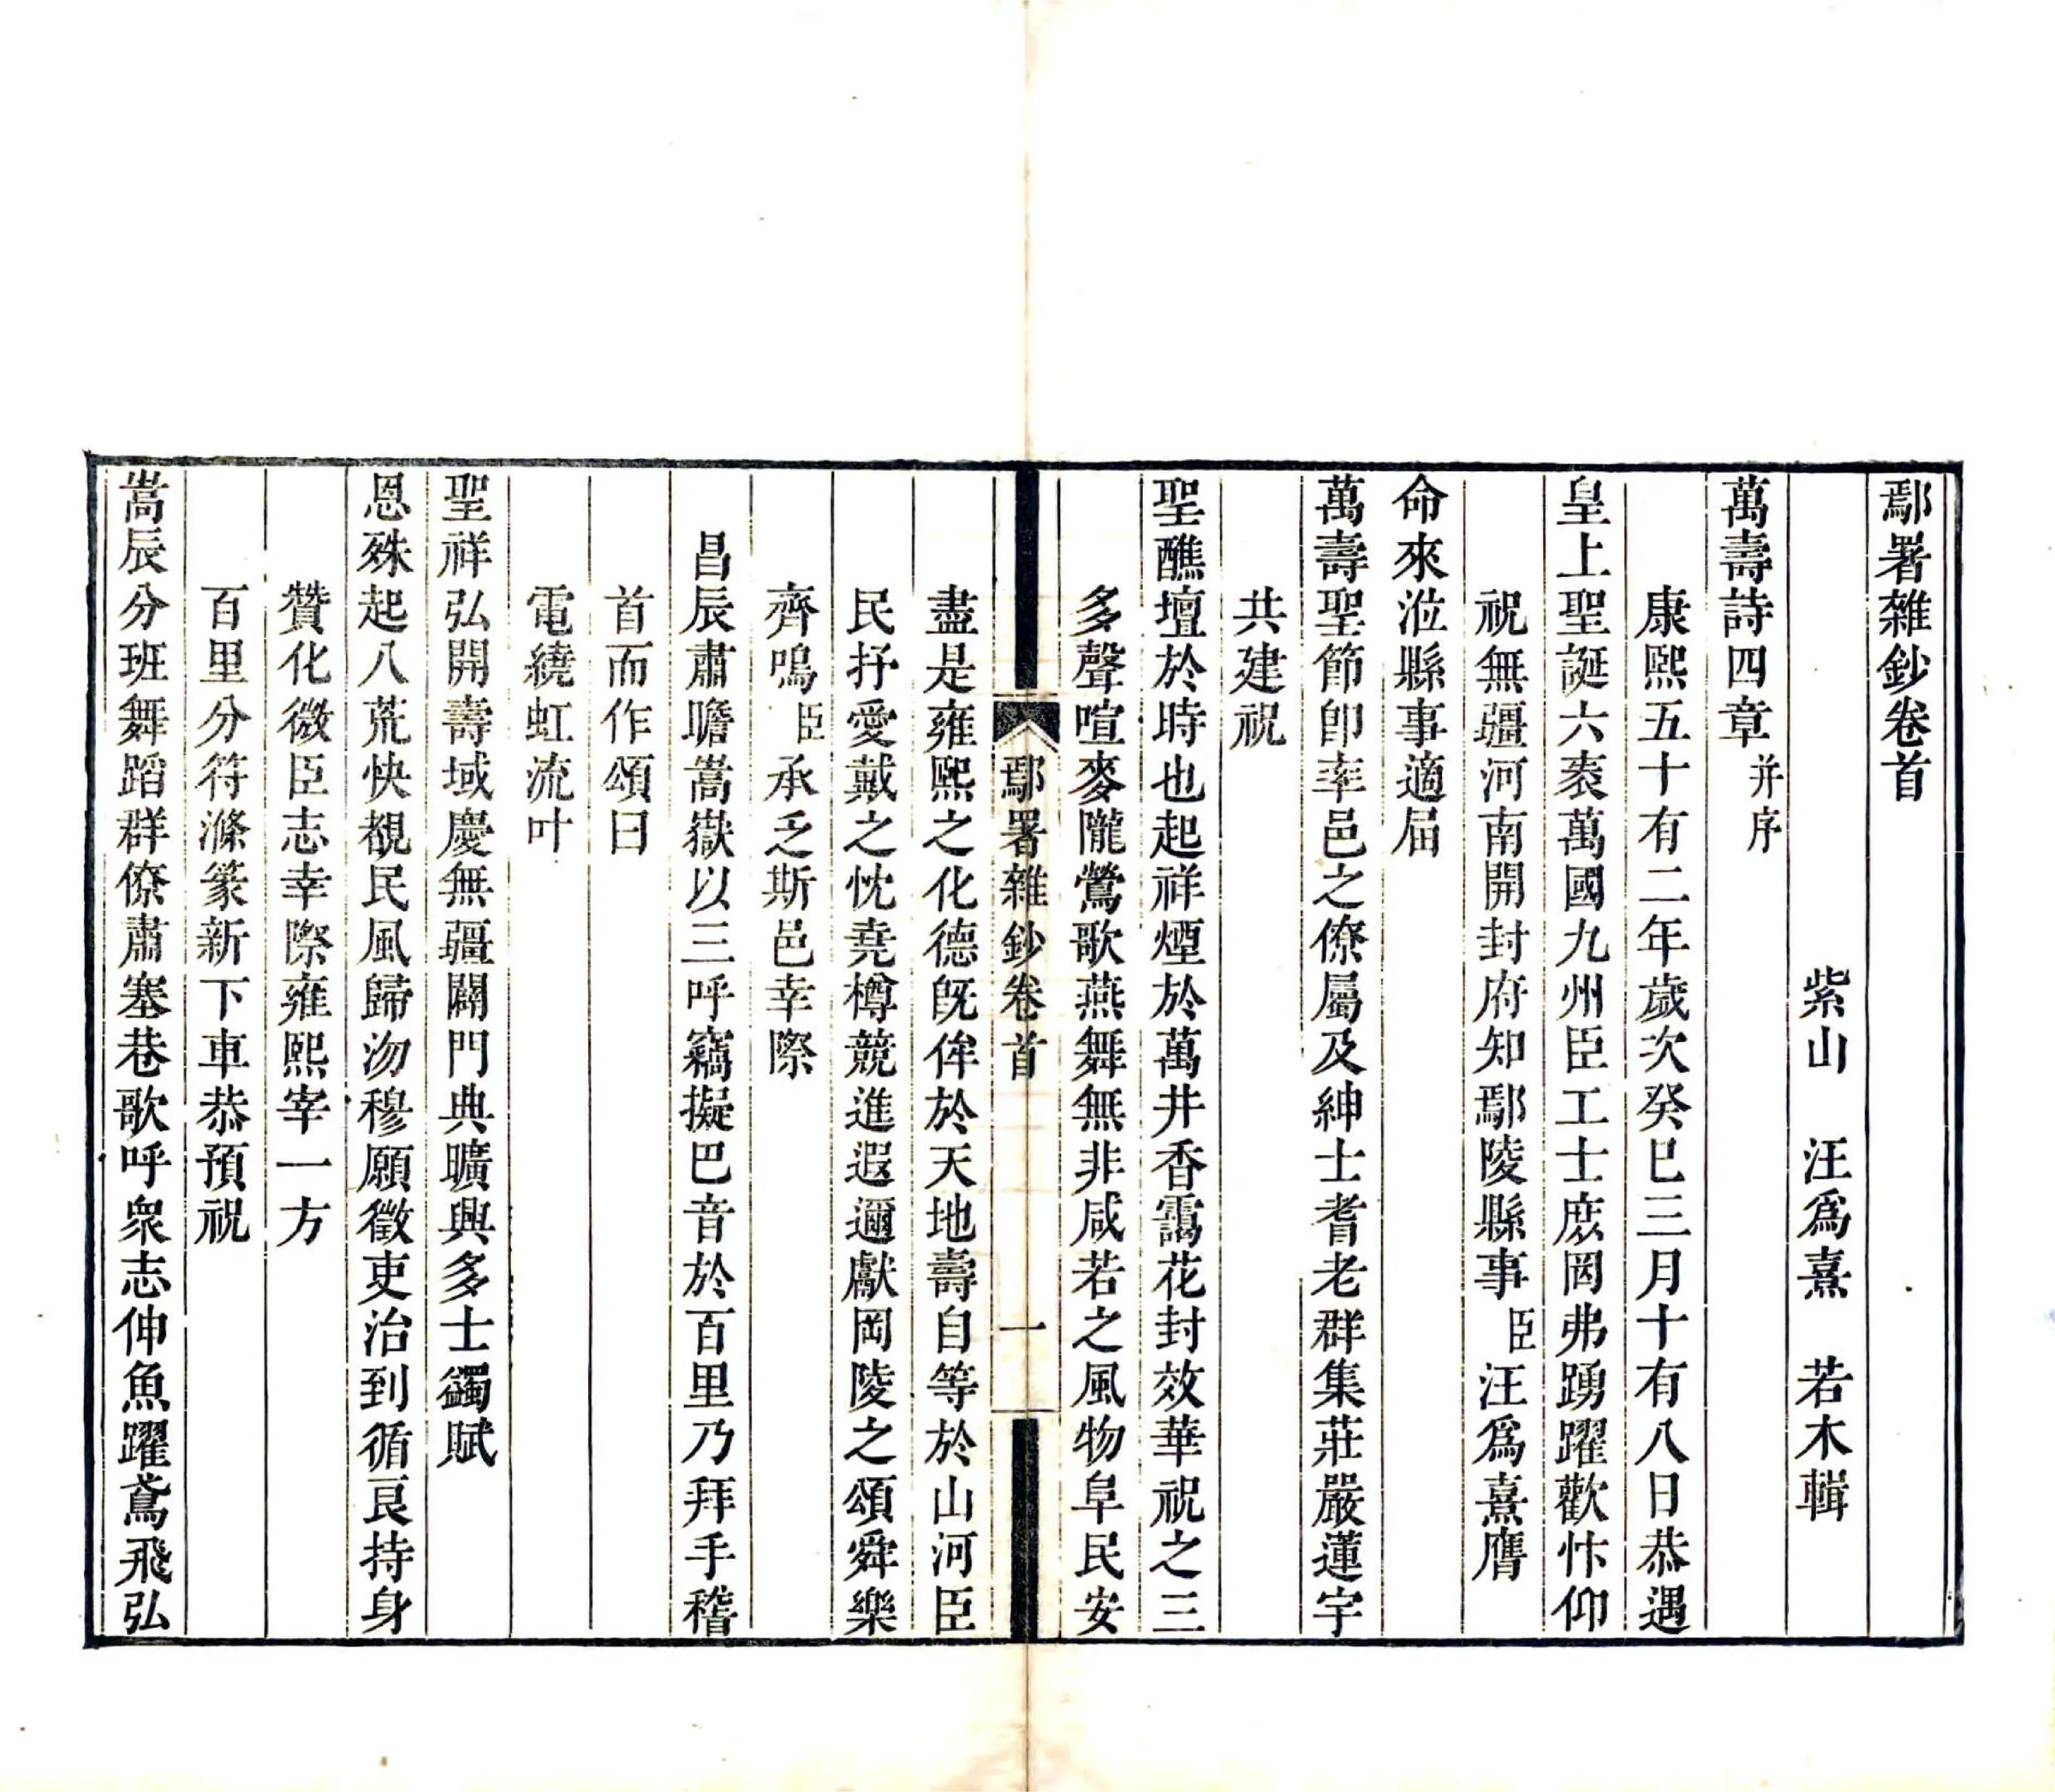 鄢署雜鈔卷首
紫山　汪爲熹　若木輯
萬壽詩四章并序
康熙五十有二年歲次癸巳三月十有八日恭遇
皇上聖誕六袠萬國九州臣工士庶罔弗踴躍歡忭仰
祝無疆河南開封府知鄢陵縣事臣汪爲熹膺
命來涖縣事適屆
萬壽聖節卽率邑之僚屬及紳士耆老群集莊嚴蓮宇
共建祝
聖醮壇於時也起祥煙於萬井香靄花封效華祝之三
多聲喧麥隴鶯歌燕舞無非咸若之風物阜民安
鄢署雜鈔卷首　一
盡是雍熙之化德旣侔於天地壽自等於山河臣
民抒愛戴之忱堯樽競進遐邇獻岡陵之頌舜樂
齊鳴臣承乏斯邑幸際
昌辰肅瞻嵩嶽以三呼竊擬巴音於百里乃拜手稽
首而作頌曰
電繞虹流叶
聖祥弘開壽域慶無疆闢門典曠興多士蠲賦
恩殊起八荒快覩民風歸沕穆願徵吏治到循良持身
贊化微臣志幸際雍熙宰一方
百里分符滌篆新下車恭預祝
嵩辰分班舞蹈群僚肅塞巷歌呼衆志伸魚躍鳶飛弘